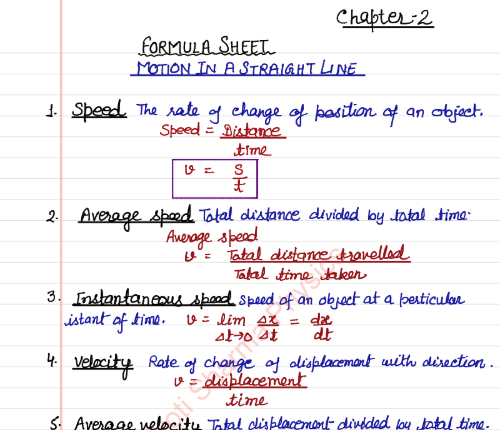 Chapter-2
FORMULA SHEET
MOTION IN A STRAIGHT LINE
1. Speed The rate of change of position of an object.
Speed = Distance
time
v = S
t
2. Average speed Total distance divided by total time.
Average speed
v = Total distance travelled
Total time taken
3. Instantaneous speed speed of an object at a perticular
istant of time. v = lim Δx = dx
Δt→0 Δt dt
4. Velocity Rate of change of displacement with direction.
v = displacement
time
5. Average velocity Total displacement divided by total time.
oti Sharma Physics